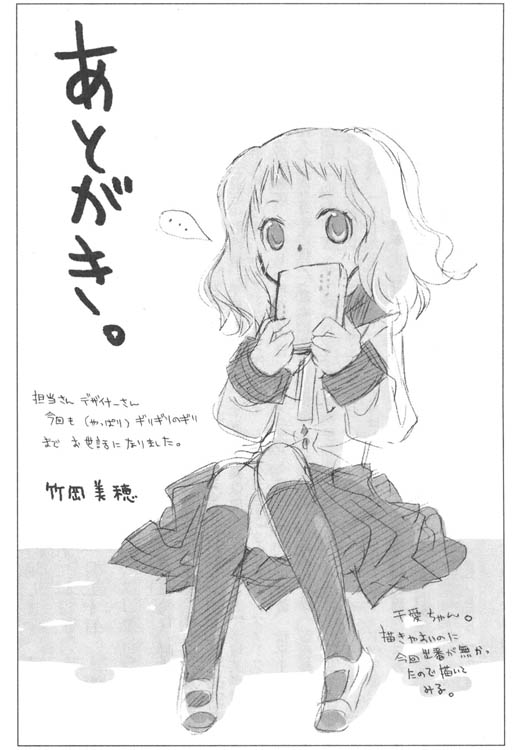 あとがき。
担当さん デザイナーさん
今回も（やっぱり）ギリギリのギリ
まで お世話になりました。
竹岡美穂
…
千愛ちゃん。
描きやすいのに
今回出番が無かっ
たので描いて
みる。